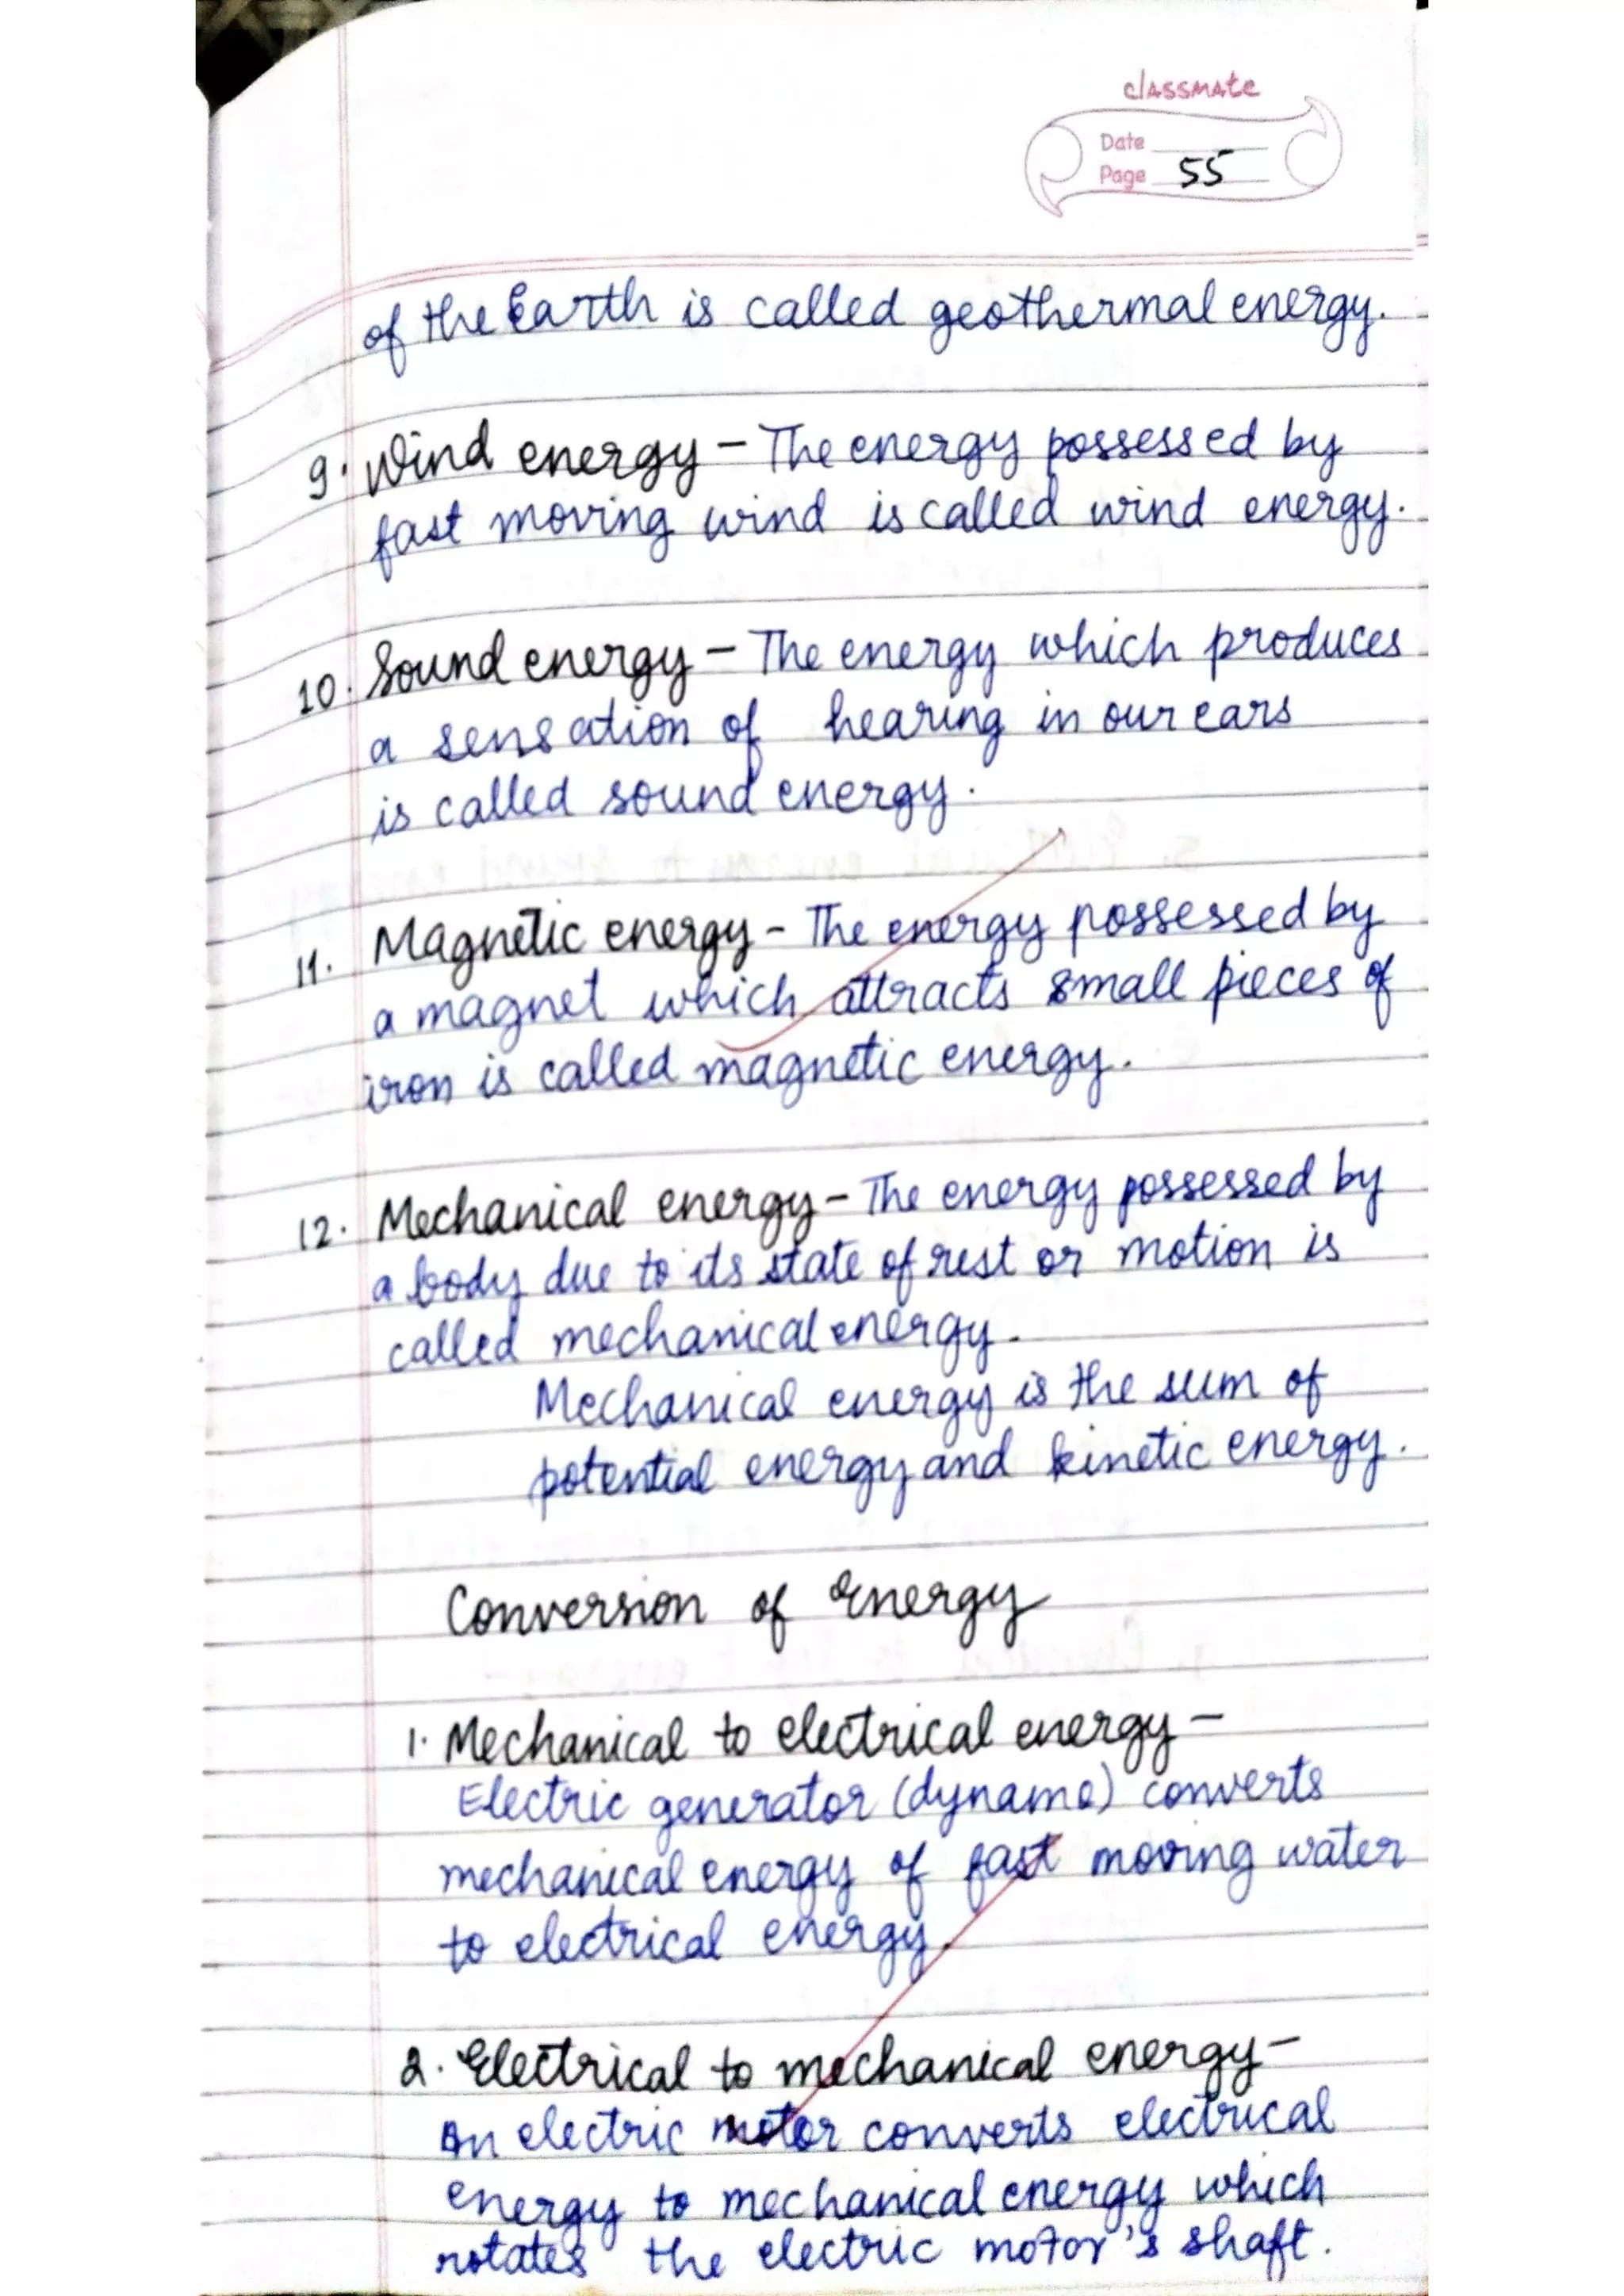 classmate
Date
Page 55
of the Earth is called geothermal energy.
9. Wind energy – The energy possessed by
fast moving wind is called wind energy.
10. Sound energy – The energy which produces
a sensation of hearing in our ears
is called sound energy.
11. Magnetic energy - The energy possessed by
a magnet which attracts small pieces of
iron is called magnetic energy.
12. Mechanical energy – The energy possessed by
a body due to its state of rest or motion is
called mechanical energy.
Mechanical energy is the sum of
potential energy and kinetic energy.
Conversion of Energy
1. Mechanical to electrical energy –
Electric generator (dynamo) converts
mechanical energy of fast moving water
to electrical energy.
2. Electrical to mechanical energy –
An electric motor converts electrical
energy to mechanical energy which
rotates the electric motor's shaft.